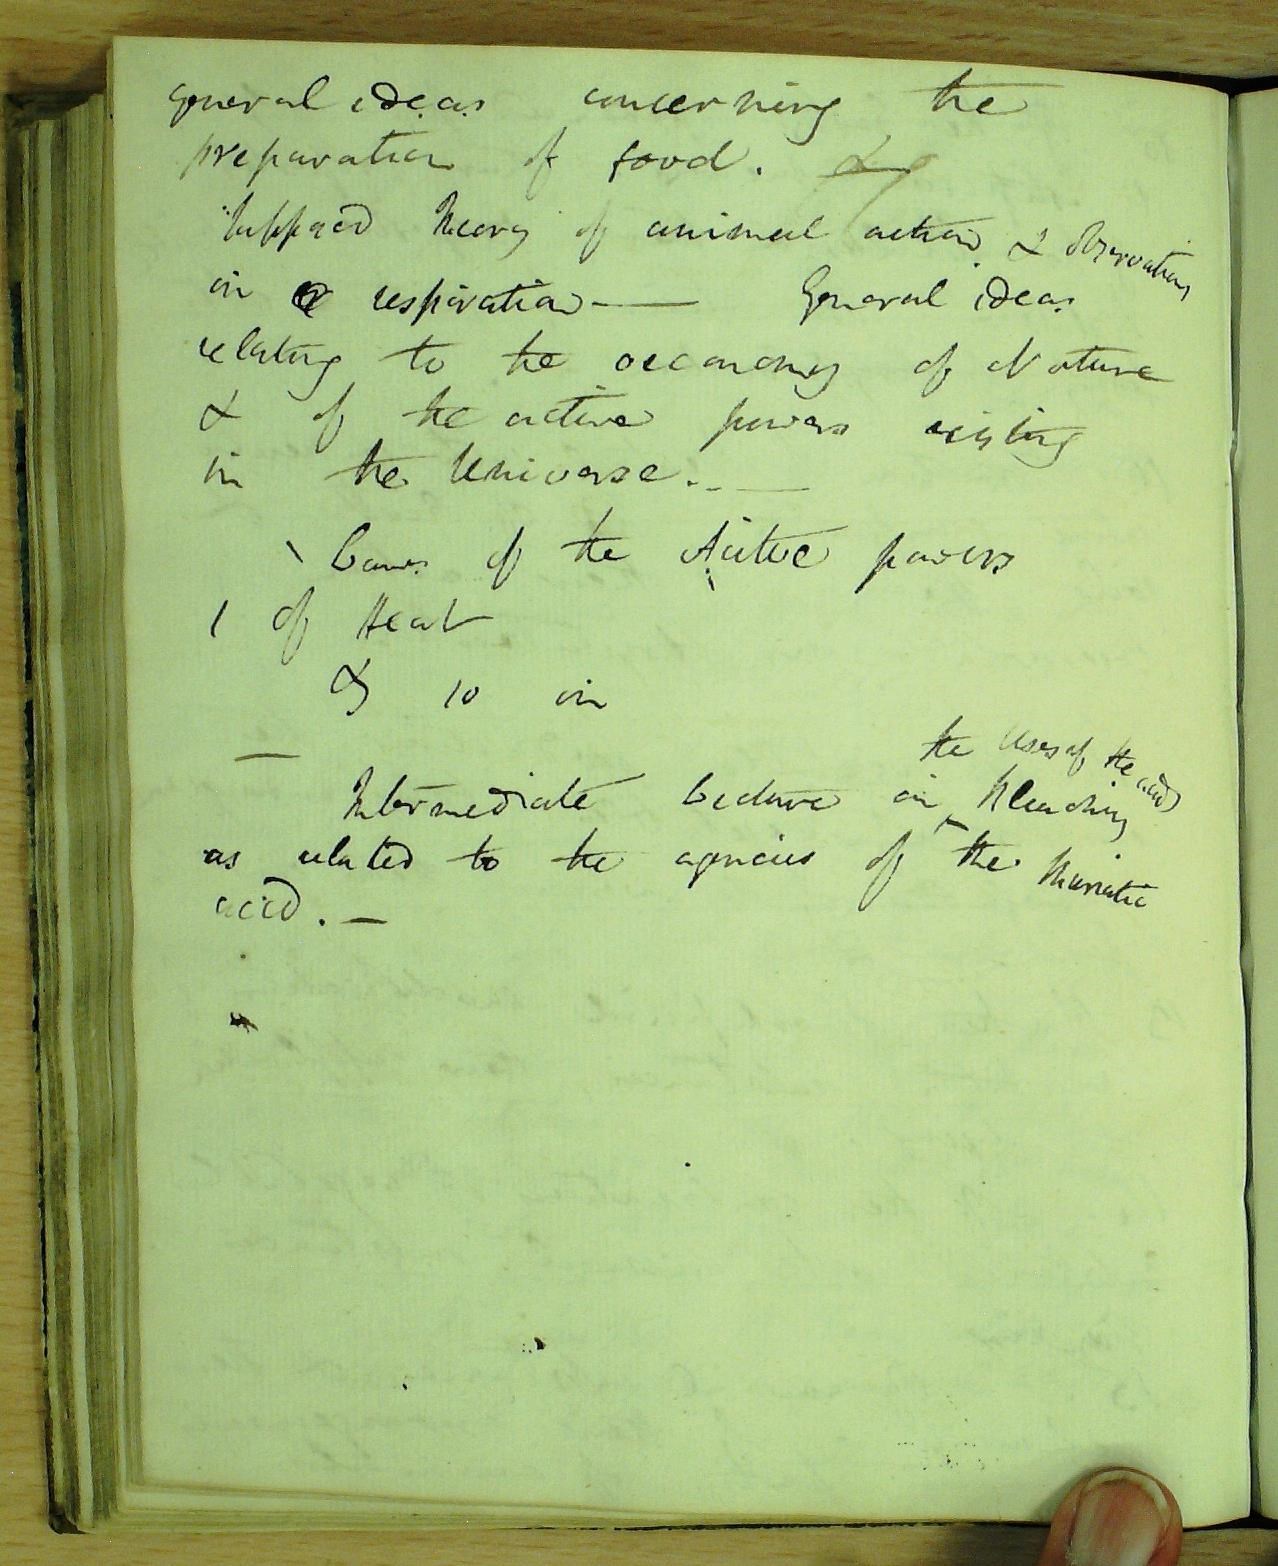 general ideas concerning the
preparation of food. &
Supposed theory of animal action & observations
on respiration — General ideas
relating to the oeconomy of Nature
& of the active powers existing
in the Universe. —
Laws of the Active powers
1 of Heat
& 10 on
the Uses of the acid
Intermediate Lecture on Bleaching
as related to the agencies of the Muriatic
acid. —